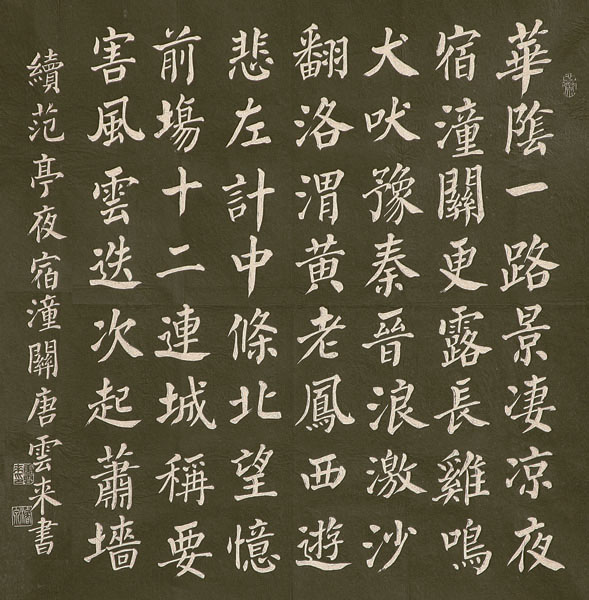 華隂一路景凄凉夜
宿潼關更露長雞鳴
犬吠豫秦晉浪激沙
翻洛渭黄老鳳西遊
悲左計中條北望憶
前塲十二連城稱要
害風雲迭次起蕭墻
續范亭夜宿潼關唐雲来書